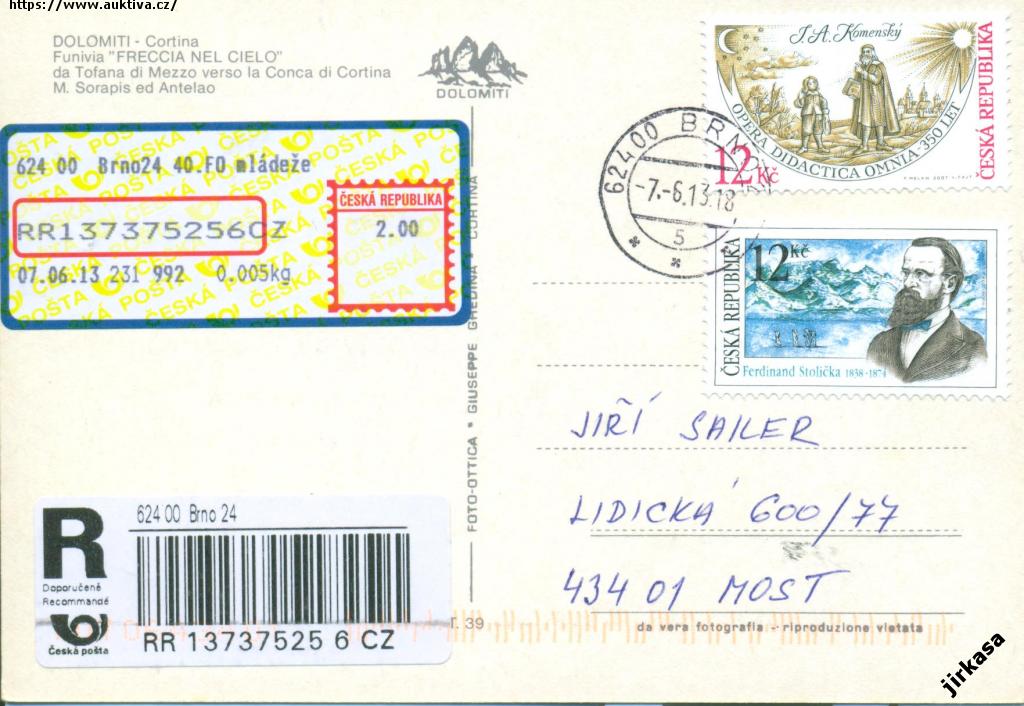 https://www.auktiva.cz/
DOLOMITI - Cortina
Funivia "FRECCIA NEL CIELO"
da Tofana di Mezzo verso la Conca di Cortina
M. Sorapis ed Antelao
DOLOMITI
J. A. Komenský
OPERA DIDACTICA OMNIA · 350 LET
ČESKÁ REPUBLIKA
12 Kč
624 00 BRNO
-7.-6.13.18
5
* *
ČESKÁ REPUBLIKA
12 Kč
Ferdinand Stolička 1838-1874
ČESKÁ POŠTA
624 00 Brno24 40.FO mládeže
RR137375256CZ
07.06.13 231 992 0.005kg
ČESKÁ REPUBLIKA
2.00
FOTO-OTTICA * GIUSEPPE GHEDINA * CORTINA
JIŘÍ SAILER
LIDICKÁ 600/77
434 01 MOST
R
Doporučeně
Recommandé
Česká pošta
624 00 Brno 24
RR 13737525 6 CZ
T. 39
da vera fotografia - riproduzione vietata
jirkasa